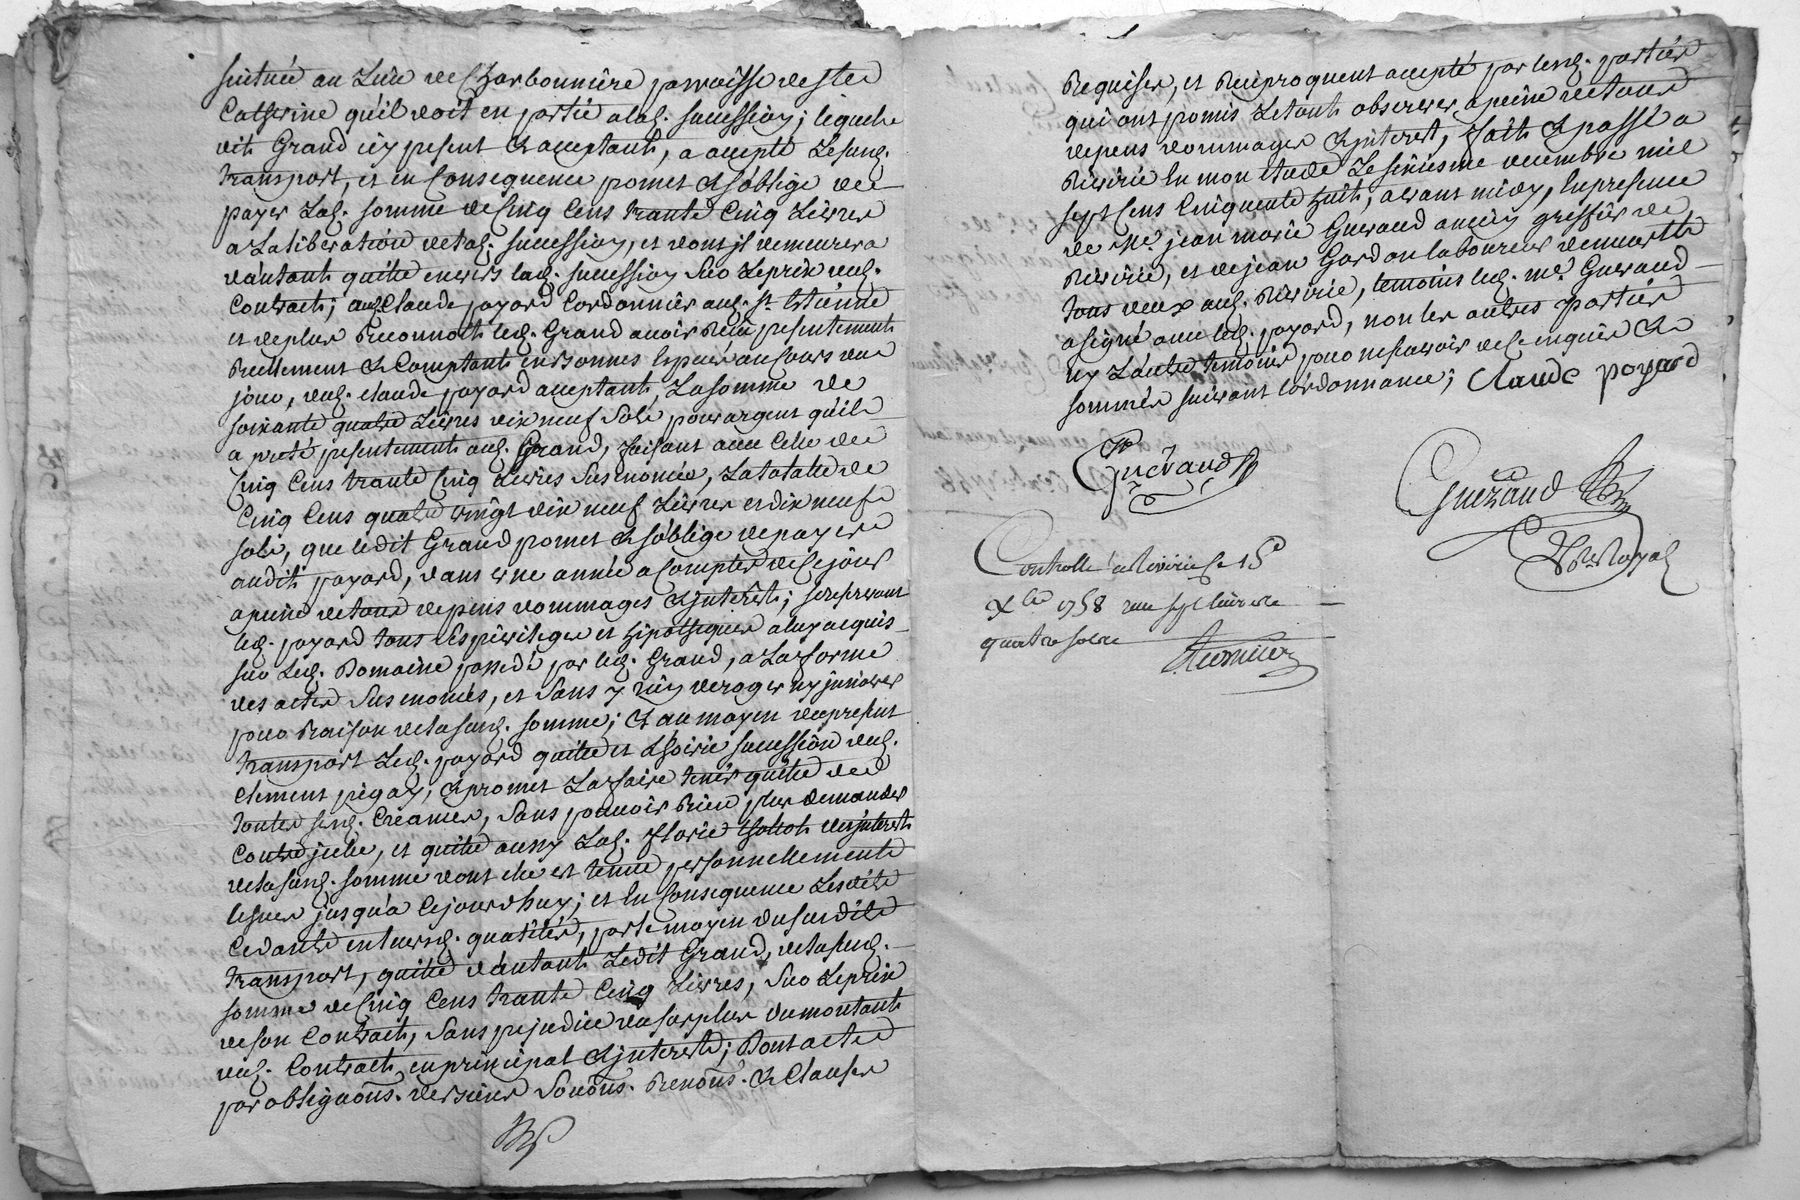 scituée au Lieu de Charbonniere parroisse de Ste
Catherine qu'il doit en partie a lad. succession; lequel
dit Grand icy present & acceptant, a accepté Le susd.
transport, et en Consequence promet & s'oblige de
payer Lad. somme de Cinq Cens trante Cinq Livres
a La liberation de lad. succession, et dont il demeurera
d'autant quitte envers lad. succession sur Le prix dud.
Contract; Claude payard Cordonnier aud. St Etienne
et de plus Reconnoit led. Grand avoir Reçu presentement
Reellement & Comptant en bonnes Especes au Cours de
jour, dud. Claude payard acceptant, La somme de
soixante quatre Livres dix neuf Sols pour argent qu'il
a preté presentement aud. Grand, faisant avec Celle de
Cinq Cens trante Cinq Livres Susnomée, La totalle de
Cinq Cens quatre vingt dix neuf Livres et dix neuf
sols, que ledit Grand promet & s'oblige de payer
audit payard, dans une année a Compter de Ce jour
a peine de tous depens dommages & interests; se reservant
led. payard tous Les privileges et hipotheques a luy acquis
sur Led. Domaine possedé par led. Grand, a La forme
des actes Susnomés, et Sans y rien deroger ny innover
pour Raison de la susd. somme; & au moyen du present
transport Led. payard quitte et hoirie succession dud.
Clement pegay, & promet La faire tenir quitte de
toutes susd. Creances, Sans pouvoir Rien plus demander
Contre icelle, et quitte aussy Lad. florie des interests
de la susd. somme dont elle est tenue personnellement
jusqu'a Cejourdhuy; et En Consequence Lesdits
Cedants en leursd. qualités, par le moyen du susdit
transport, quitte d'autant Ledit Grand, de la susd.
somme de Cinq Cens trante Cinq Livres, Sur Le prix
de son Contract, Sans prejudice du surplus du montant
dud. Contract en principal & interests; Dont acte
par obligaons. de biens Soumons. Renons. & Clauses
Requises, et Reciproquent accepté par lesd. parties
qui ont promis Le tout observer, a peine de tous
depens dommages & interest, fait & passé a
Riverie En mon etude Le sixiesme decembre mil
sept Cens Cinquante huit, avant midy, En presence
de Me jean marie Guerand ancien greffier de
Riverie, et de jean Gardon laboureur demeurants
tous deux aud. Riverie, temoins led. me. Guerand
a signé avec led. payard, non les autres parties
ny L'autre temoin pour ne sçavoir de Ce enquis &
sommés suivant L'ordonnance; Claude payard
Guerand
Guerand
Nre Royal
Controllé a Riverie Le 15e
Xbre 1758 reçu sept livres
quatre sols